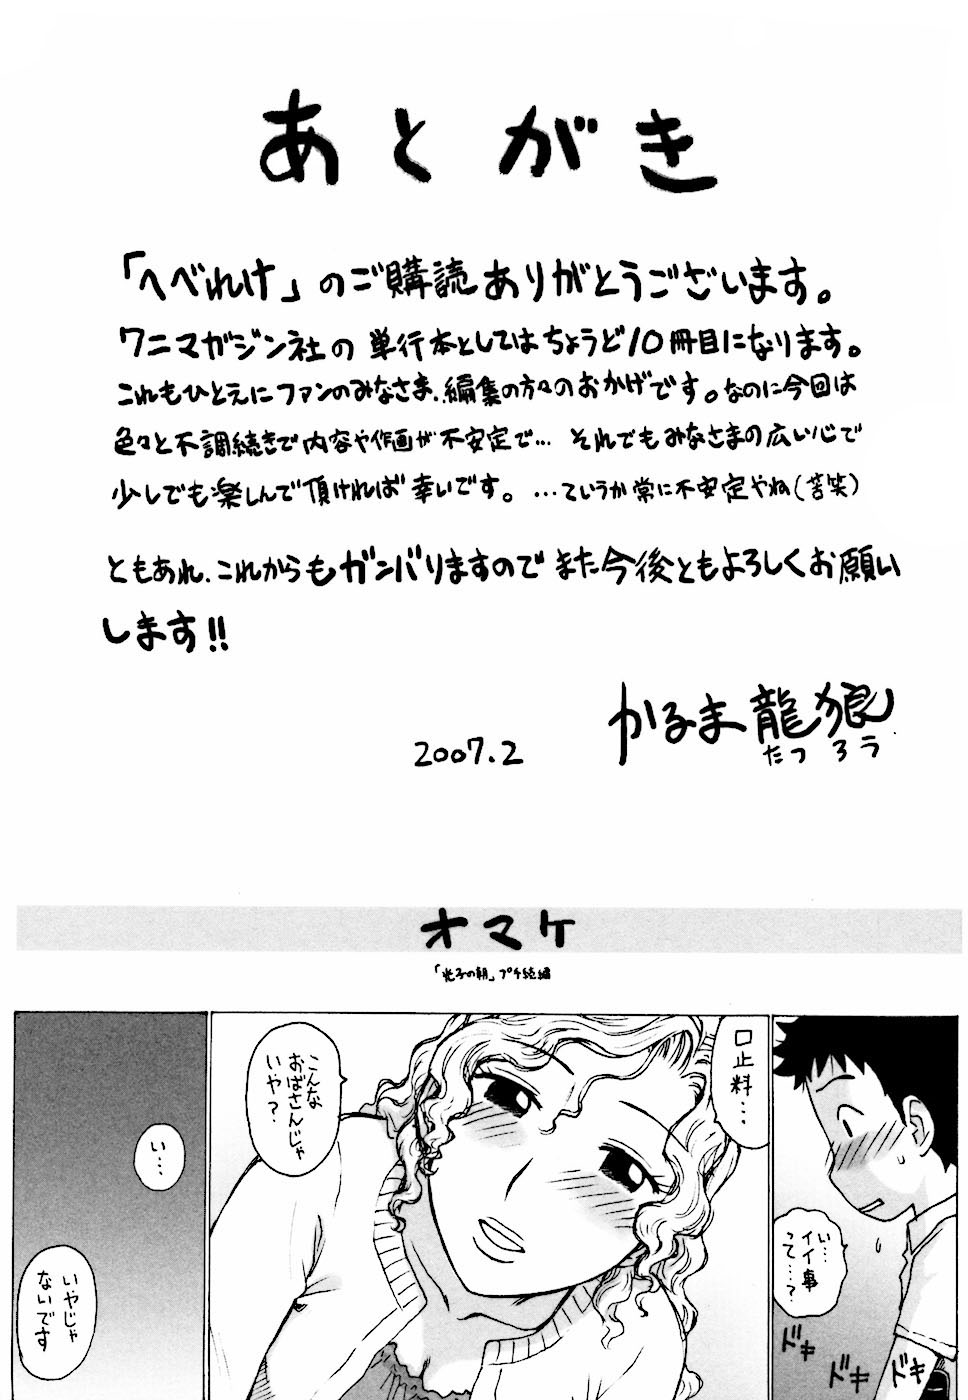 あとがき
「へべれけ」のご購読ありがとうございます。
ワニマガジン社の単行本としてはちょうど10冊目になります。
これもひとえにファンのみなさま、編集の方々のおかげです。なのに今回は
色々と不調続きで内容や作画が不安定で… それでもみなさまの広い心で
少しでも楽しんで頂ければ幸いです。…ていうか常に不安定やね(苦笑)
ともあれ、これからもガンバりますのでまた今後ともよろしくお願い
します!!
2007.2
かるま龍狼
たつろう
オマケ
「光子の朝」プチ続編
い…
イイ事
って…?
ドキ
ドキ
ドキ
口止料…
こんな
おばさんじゃ
いや?
い…
いやじゃ
ないです